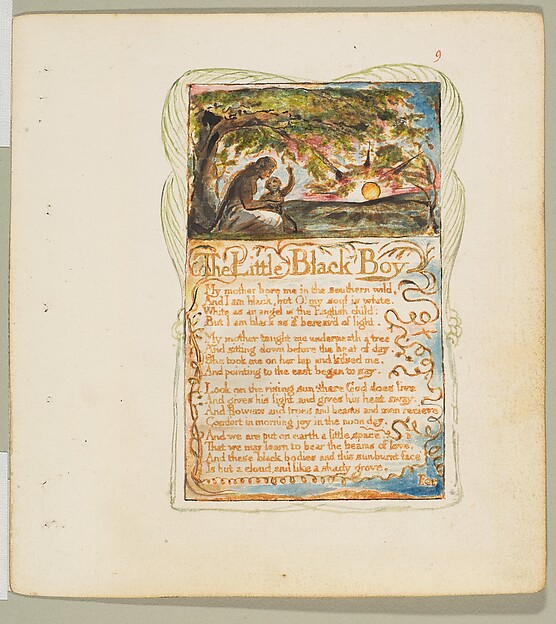 9
The Little Black Boy
My mother bore me in the southern wild,
And I am black, but O! my soul is white.
White as an angel is the English child:
But I am black as if bereav'd of light.
My mother taught me underneath a tree
And sitting down before the heat of day
She took me on her lap and kissed me.
And pointing to the east began to say.
Look on the rising sun: there God does live
And gives his light, and gives his heat away.
And flowers and trees and beasts and men recieve
Comfort in morning joy in the noon day.
And we are put on earth a little space.
That we may learn to bear the beams of love.
And these black bodies and this sunburnt face
Is but a cloud, and like a shady grove.
For